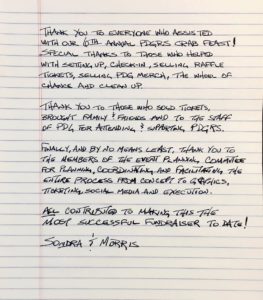 THANK YOU TO EVERYONE WHO ASSISTED
WITH OUR 6TH ANNUAL PDGRS CRAB FEAST!
SPECIAL THANKS TO THOSE WHO HELPED
WITH SETTING UP, CHECK-IN, SELLING RAFFLE
TICKETS, SELLING PDG MERCH, THE WHEEL OF
CHANCE AND CLEAN UP.
THANK YOU TO THOSE WHO SOLD TICKETS,
BROUGHT FAMILY & FRIENDS AND TO THE STAFF
OF PDG FOR ATTENDING & SUPPORTING PDGRS.
FINALLY, AND BY NO MEANS LEAST, THANK YOU TO
THE MEMBERS OF THE EVENT PLANNING COMMITTEE
FOR PLANNING, COORDINATING AND FACILITATING THE
ENTIRE PROCESS FROM CONCEPT TO GRAPHICS,
TICKETING, SOCIAL MEDIA AND EXECUTION.
ALL CONTRIBUTED TO MAKING THIS THE
MOST SUCCESSFUL FUNDRAISER TO DATE!
SONDRA & MORRIS